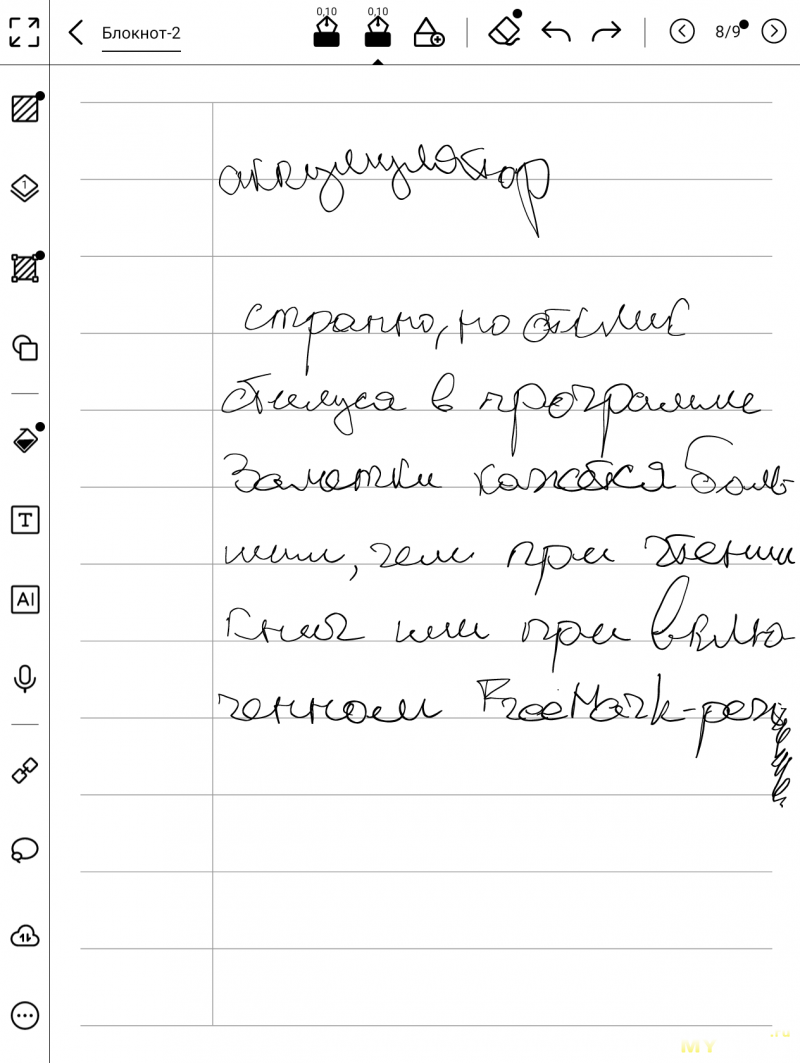 0,10 0,10
Блокнот-2 8/9
1
T
AI
аккумулятор
странно, но отклик
стилуса в программе
Заметки кажется боль-
шим, чем при чтении
книг или при вклю
ченном FreeMark-реж
MY .ru